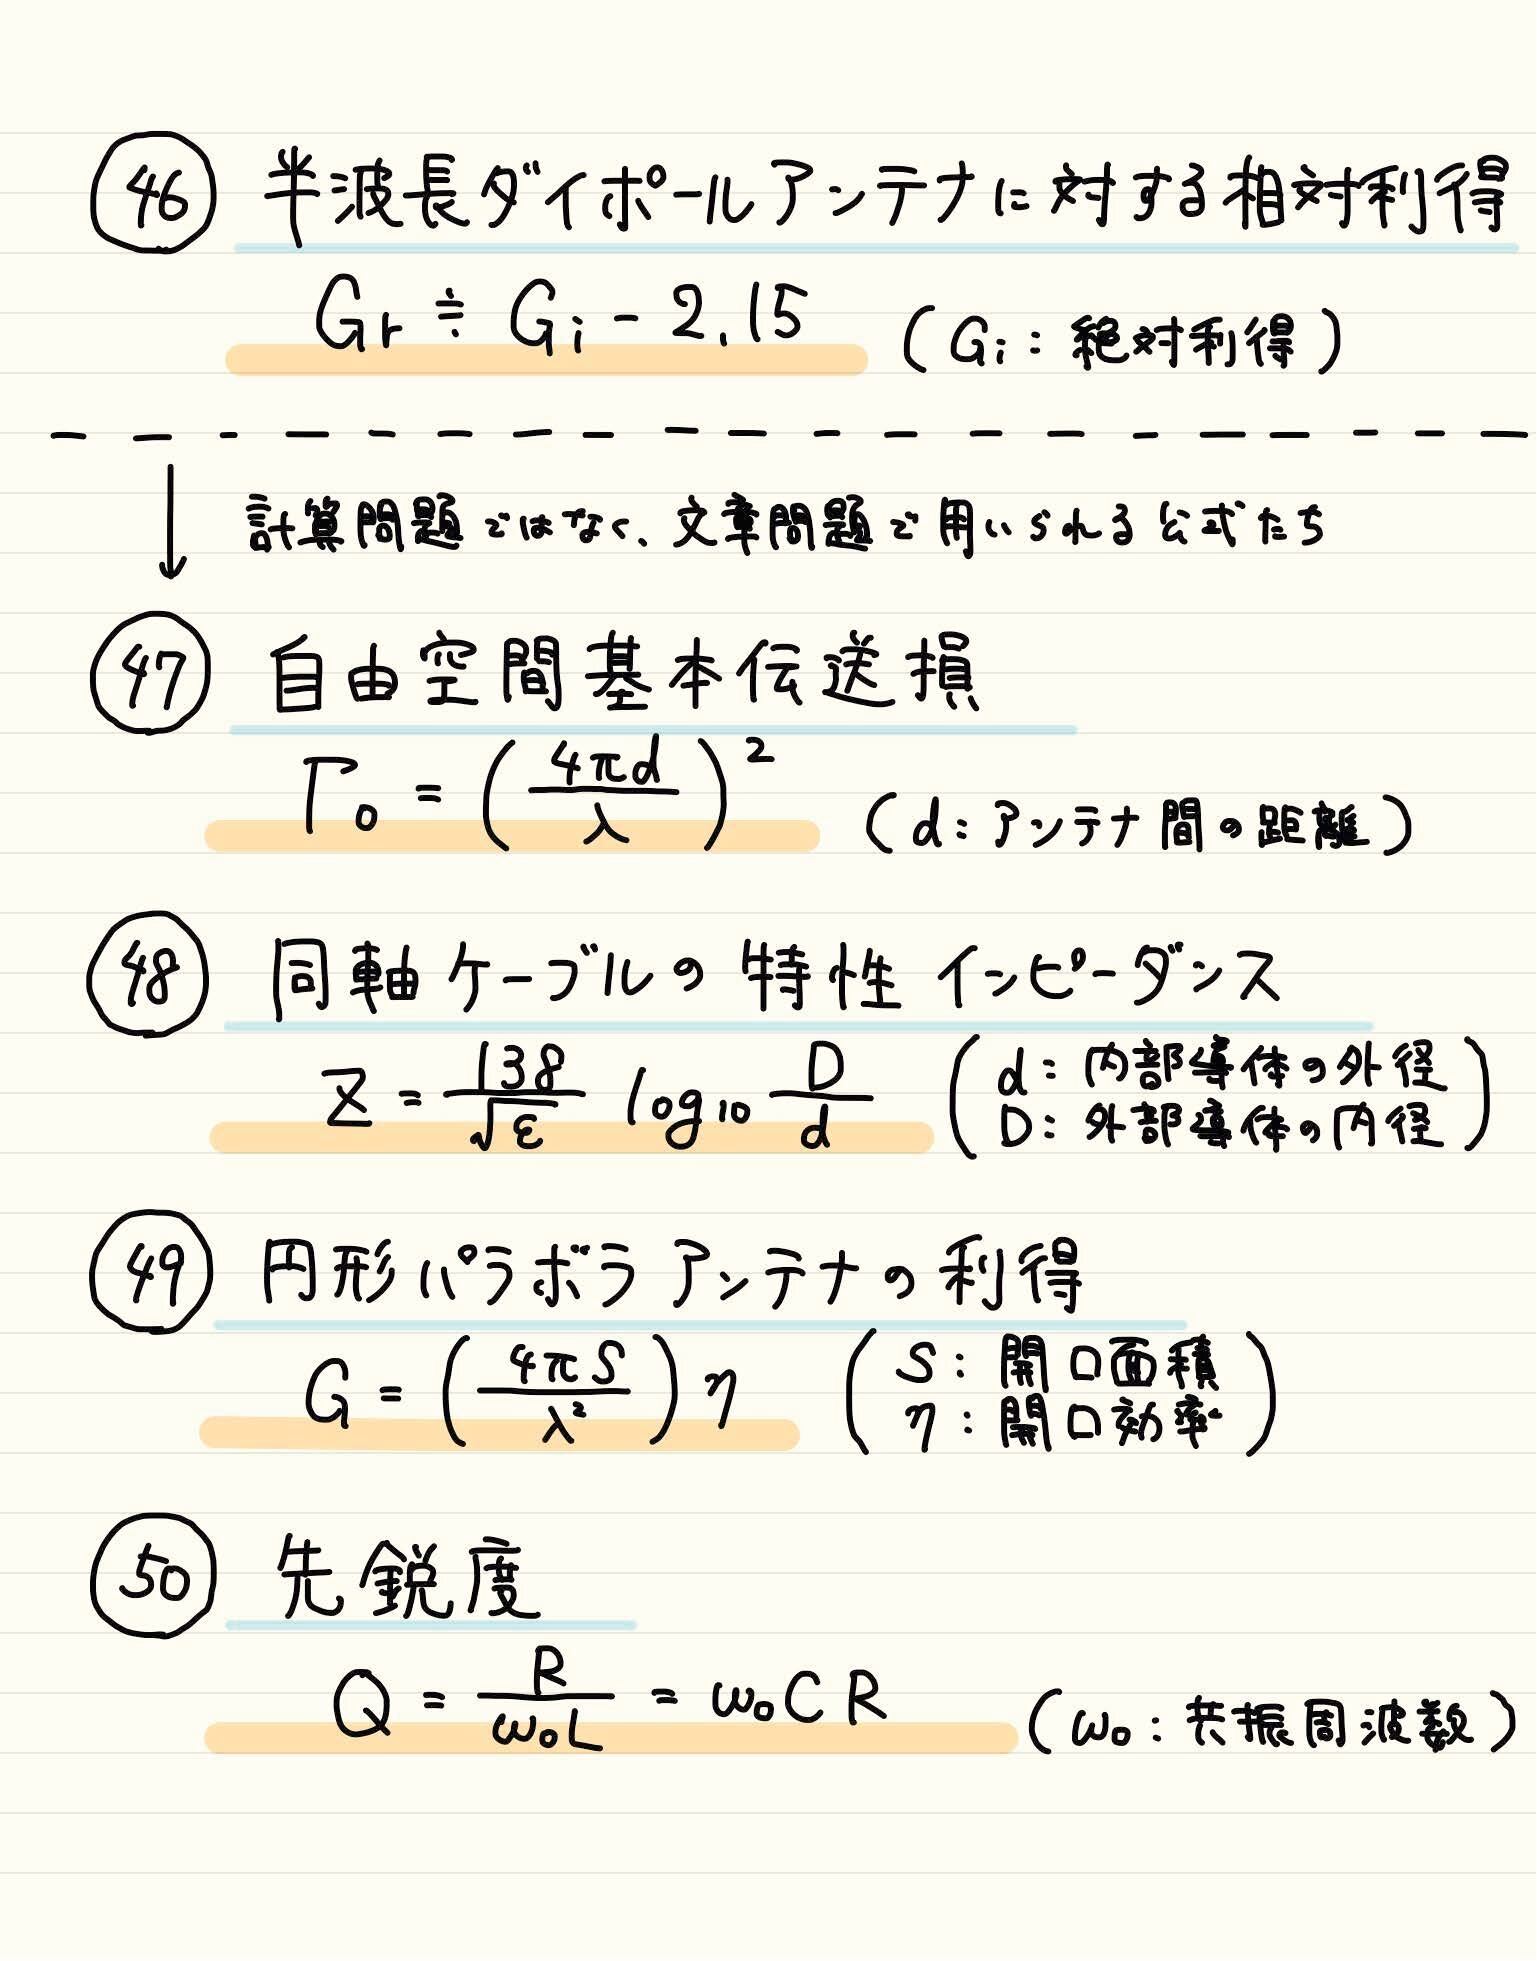 ㊻ 半波長ダイポールアンテナに対する相対利得
Gr ≒ Gi - 2.15 (Gi: 絶対利得)
↓ 計算問題ではなく、文章問題で用いられる公式たち
㊼ 自由空間基本伝送損
Γ₀ = (4πd/λ)² (d: アンテナ間の距離)
㊽ 同軸ケーブルの特性インピーダンス
Z = 138/√ε log₁₀ D/d (d: 内部導体の外径
D: 外部導体の内径)
㊾ 円形パラボラアンテナの利得
G = (4πS/λ²)η (S: 開口面積
η: 開口効率)
㊿ 先鋭度
Q = R/ω₀L = ω₀CR (ω₀: 共振周波数)